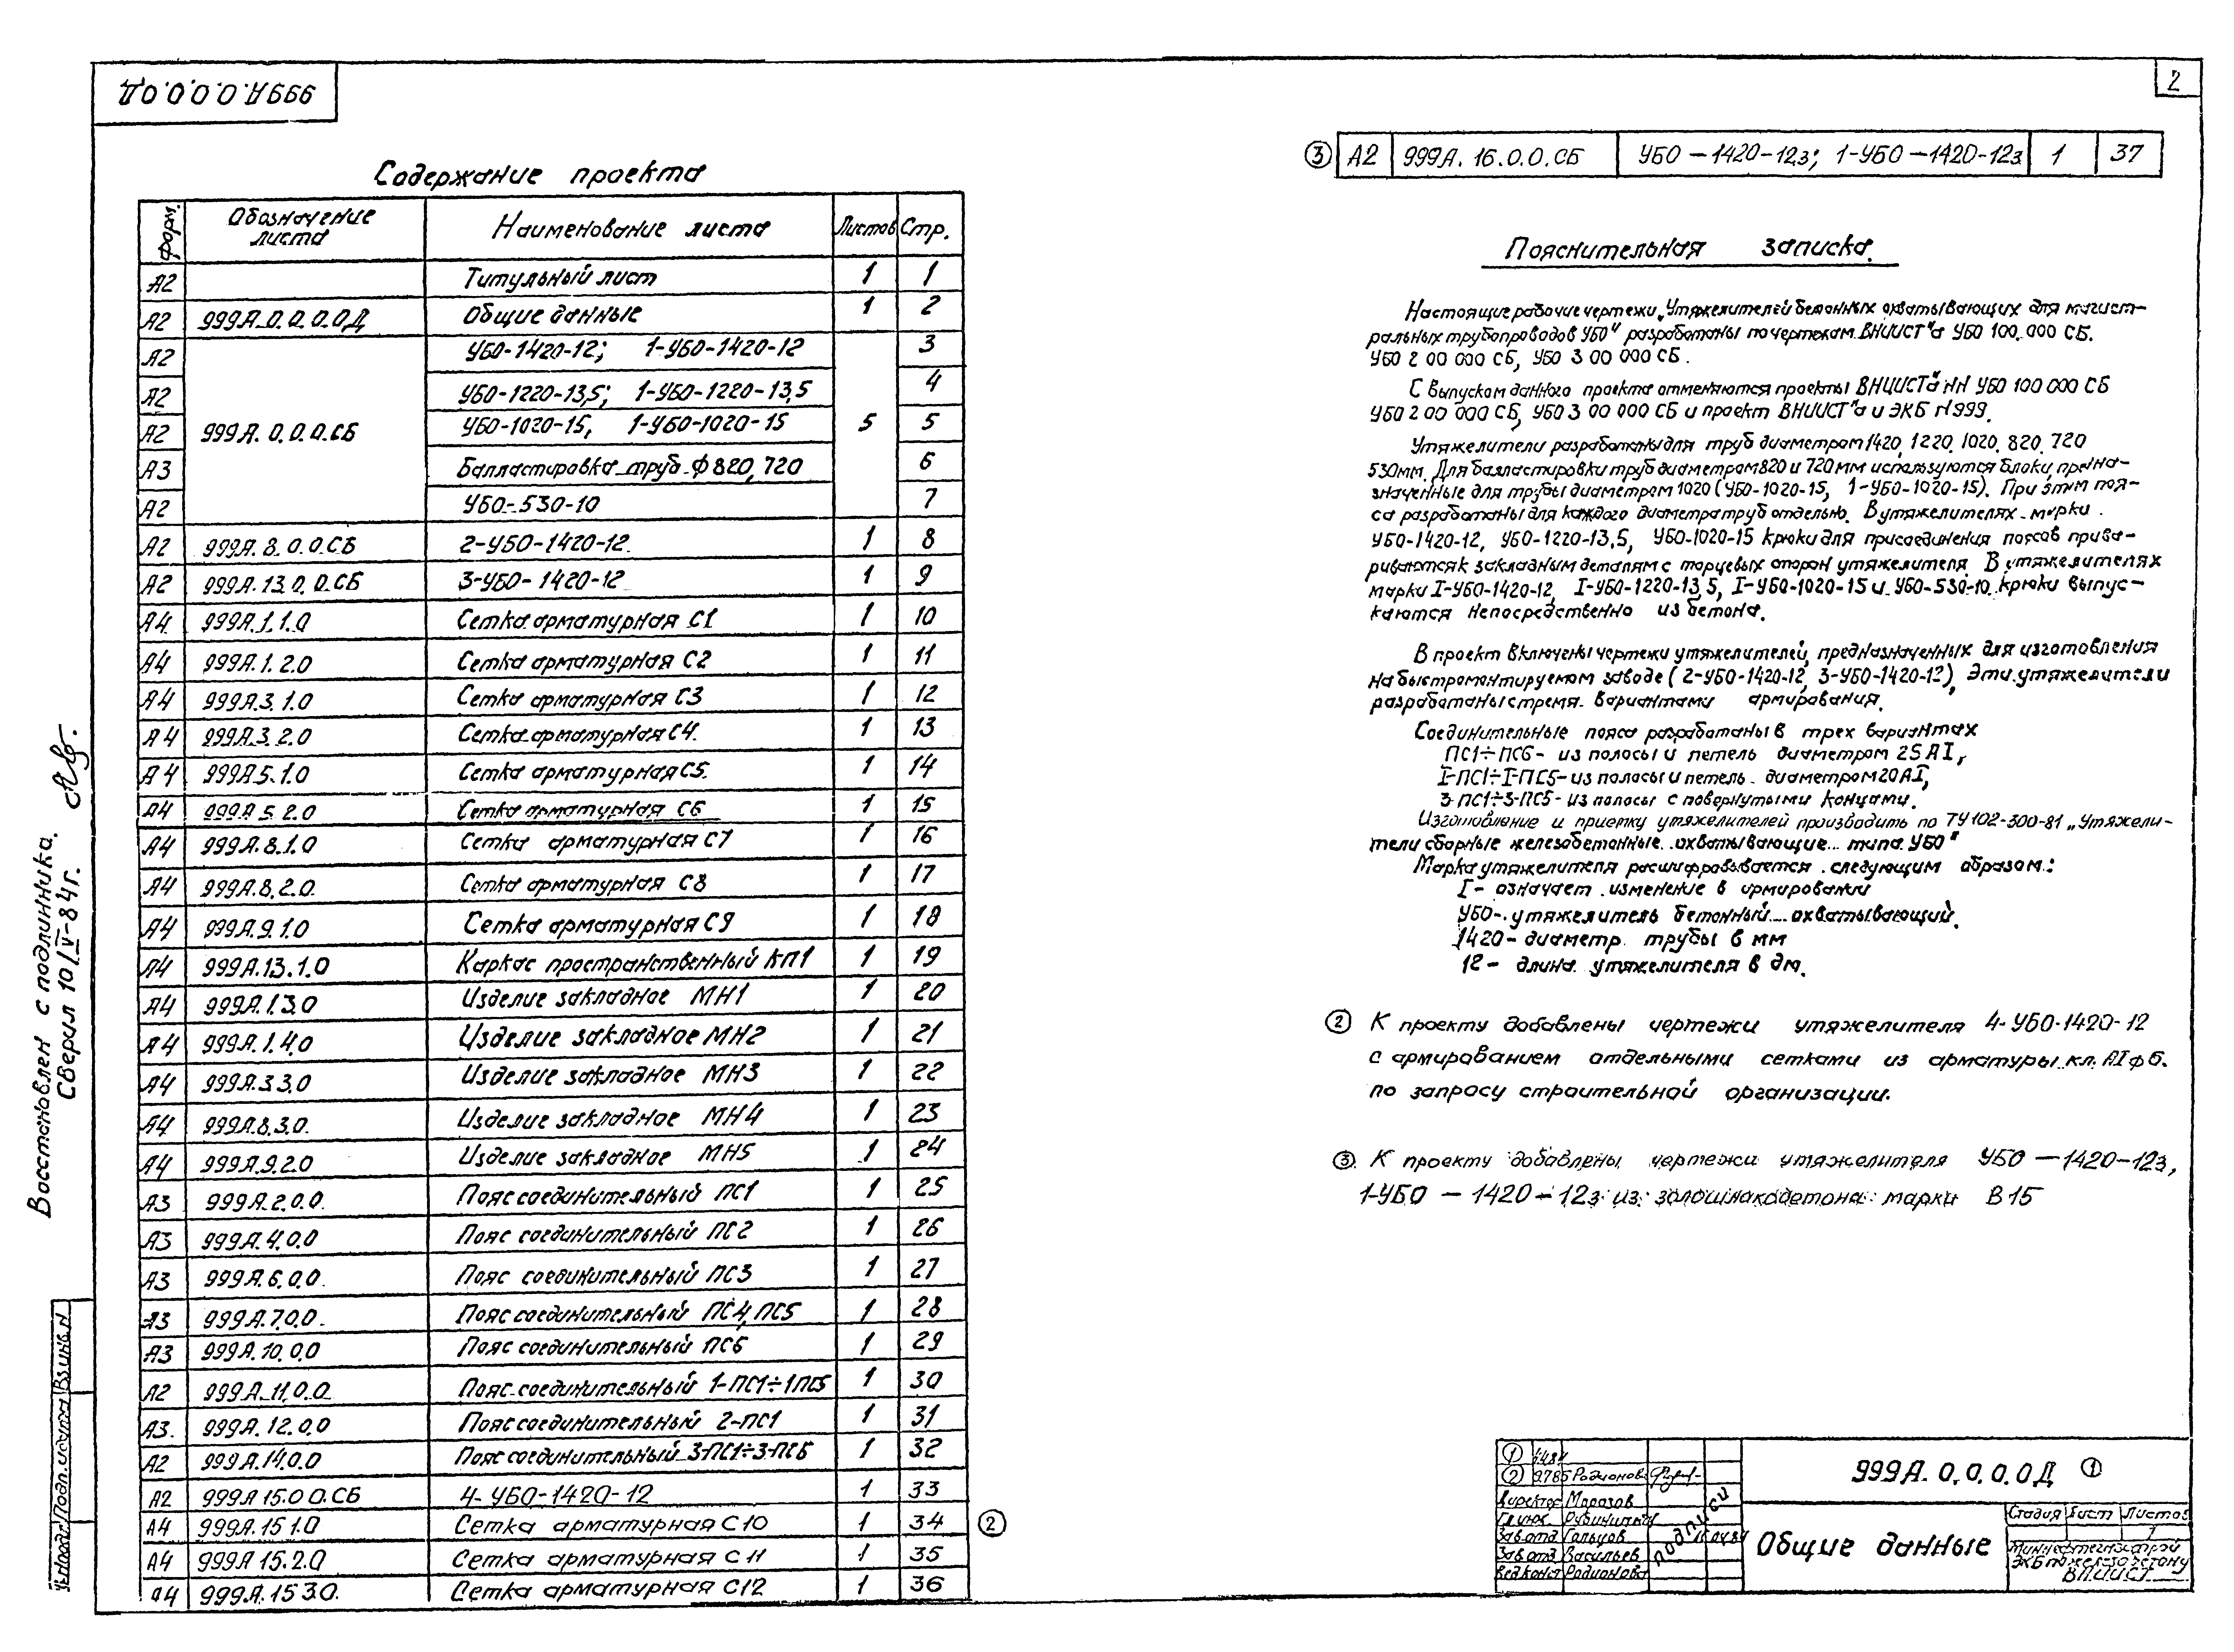 999А.0.0.0.0Д
2
Содержание проекта
Форм. Обозначение листа Наименование листа Листов Стр.
А2 Титульный лист 1 1
А2 999А.0.0.0.0Д Общие данные 1 2
А2 999А.0.0.0.СБ УБО-1420-12; 1-УБО-1420-12 5 3
А2 УБО-1220-13,5; 1-УБО-1220-13,5 4
А2 УБО-1020-15, 1-УБО-1020-15 5
А3 Балластировка труб ф 820, 720 6
А2 УБО-530-10 7
А2 999А.8.0.0.СБ 2-УБО-1420-12 1 8
А2 999А.13.0.0.СБ 3-УБО-1420-12 1 9
А4 999А.1.1.0 Сетка арматурная С1 1 10
А4 999А.1.2.0 Сетка арматурная С2 1 11
А4 999А.3.1.0 Сетка арматурная С3 1 12
А4 999А.3.2.0 Сетка арматурная С4. 1 13
А4 999А.5.1.0 Сетка арматурная С5. 1 14
А4 999А.5.2.0 Сетка арматурная С6 1 15
А4 999А.8.1.0 Сетка арматурная С7 1 16
А4 999А.8.2.0. Сетка арматурная С8 1 17
А4 999А.9.1.0 Сетка арматурная С9 1 18
А4 999А.13.1.0 Каркас пространственный КП1 1 19
А4 999А.1.3.0 Изделие закладное МН1 1 20
А4 999А.1.4.0 Изделие закладное МН2 1 21
А4 999А.3.3.0 Изделие закладное МН3 1 22
А4 999А.8.3.0. Изделие закладное МН4 1 23
А4 999А.9.2.0 Изделие закладное МН5 1 24
А3 999А.2.0.0. Пояс соединительный ПС1 1 25
А3 999А.4.0.0 Пояс соединительный ПС2 1 26
А3 999А.6.0.0. Пояс соединительный ПС3 1 27
А3 999А.7.0.0. Пояс соединительный ПС4, ПС5 1 28
А3 999А.10.0.0 Пояс соединительный ПС6 1 29
А2 999А.11.0.0. Пояс соединительный 1-ПС1÷1ПС5 1 30
А3. 999А.12.0.0 Пояс соединительный 2-ПС1 1 31
А2 999А.14.0.0 Пояс соединительный 3-ПС1÷3-ПС5 1 32
А2 999А 15.0 0.СБ 4-УБО-1420-12 1 33
А4 999А.15 1.0 Сетка арматурная С10 1 34 ②
А4 999А 15.2.0 Сетка арматурная С11 1 35
А4 999А.15 3.0. Сетка арматурная С12 1 36
③ А2 999А.16.0.0.СБ УБО-1420-12з; 1-УБО-1420-12з 1 37
Пояснительная записка.
Настоящие рабочие чертежи „Утяжелителей бетонных охватывающих для магист-
ральных трубопроводов УБО" разработаны по чертежам ВНИИСТ"а УБО 100.000 СБ.
УБО 2 00 000 СБ, УБО 3 00 000 СБ.
С выпуском данного проекта отменяются проекты ВНИИСТ"а НН УБО 100 000 СБ
УБО 2 00 000 СБ, УБО 3 00 000 СБ и проект ВНИИСТ"а и ЭКБ N 999.
Утяжелители разработаны для труб диаметром 1420, 1220, 1020, 820, 720
530мм. Для балластировки труб диаметром 820 и 720 мм используются блоки, предна-
значенные для трубы диаметром 1020 (УБО-1020-15, 1-УБО-1020-15). При этом поя-
са разработаны для каждого диаметра труб отдельно. В утяжелителях марки
УБО-1420-12, УБО-1220-13,5, УБО-1020-15 крюки для присоединения поясов прива-
риваются к закладным деталям с торцевых сторон утяжелителя В утяжелителях
марки I-УБО-1420-12, I-УБО-1220-13,5, I-УБО-1020-15 и УБО-530-10 крюки выпус-
каются непосредственно из бетона.
В проект включены чертежи утяжелителей, предназначенных для изготовления
на быстромонтируемом заводе (2-УБО-1420-12, 3-УБО-1420-12), Эти утяжелители
разработаны с тремя вариантами армирования.
Соединительные пояса разработаны в трех вариантах
ПС1÷ПС6- из полосы и петель диаметром 25 АI,
I-ПС1÷I-ПС5- из полосы и петель диаметром 20 АI,
3-ПС1÷3-ПС5- из полосы с повернутыми концами.
Изготовление и приемку утяжелителей производить по ТУ 102-300-81 „Утяжели-
тели сборные железобетонные охватывающие типа УБО"
Марка утяжелителя расшифровывается следующим образом:
I- означает изменение в армировании
УБО- утяжелитель бетонный охватывающий.
1420- диаметр трубы в мм
12- длина утяжелителя в дм.
② К проекту добавлены чертежи утяжелителя 4-УБО-1420-12
с армированием отдельными сетками из арматуры кл. АI ф 6.
по запросу строительной организации.
③ К проекту добавлены чертежи утяжелителя УБО-1420-12з,
1-УБО-1420-12з из золошлакобетона марки В 15
Восстановлен с подлинника.
Сверил 10/V-84г.
Взинв.N
Подп.и дата
① 1484
② 9785 Родионов
Директор Морозов
Зав отд Гольцов
Зав отд Васильев
Вед конст Родионов
подписи
999А.0.0.0.0Д ①
Общие данные
Стадия Лист Листов
1
Миннефтегазстрой
ЭКБ по железобетону
ВНИИСТ